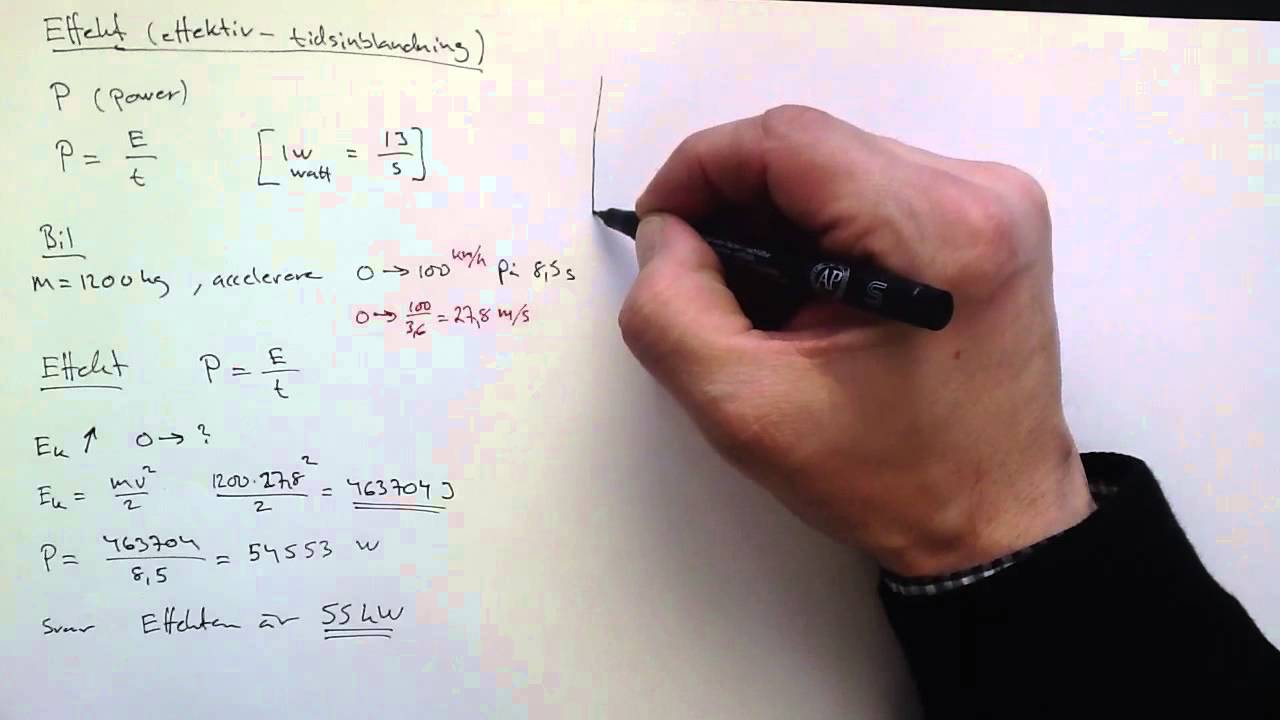 Effekt (effektiv - tidsinblandning)
P (Power)
P = E/t [1W watt = 1J/s]
Bil
m = 1200 kg, accelerere 0 → 100 km/h på 8,5 s
0 → 100/3,6 = 27,8 m/s
Effekt P = E/t
Ek ↑ 0 → ?
Ek = mv²/2 1200·27,8²/2 = 463704 J
P = 463704/8,5 = 54553 W
Svar Effekten är 55 kW
AP S